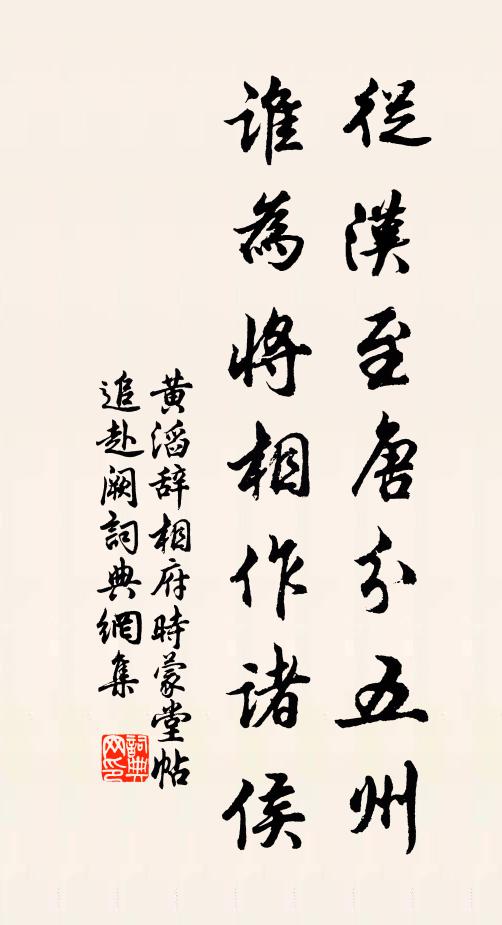 從漢至唐分五州
誰為將相作諸侯
黃滔辭相府時蒙堂帖
追赴闕詞典網集
詞典網印